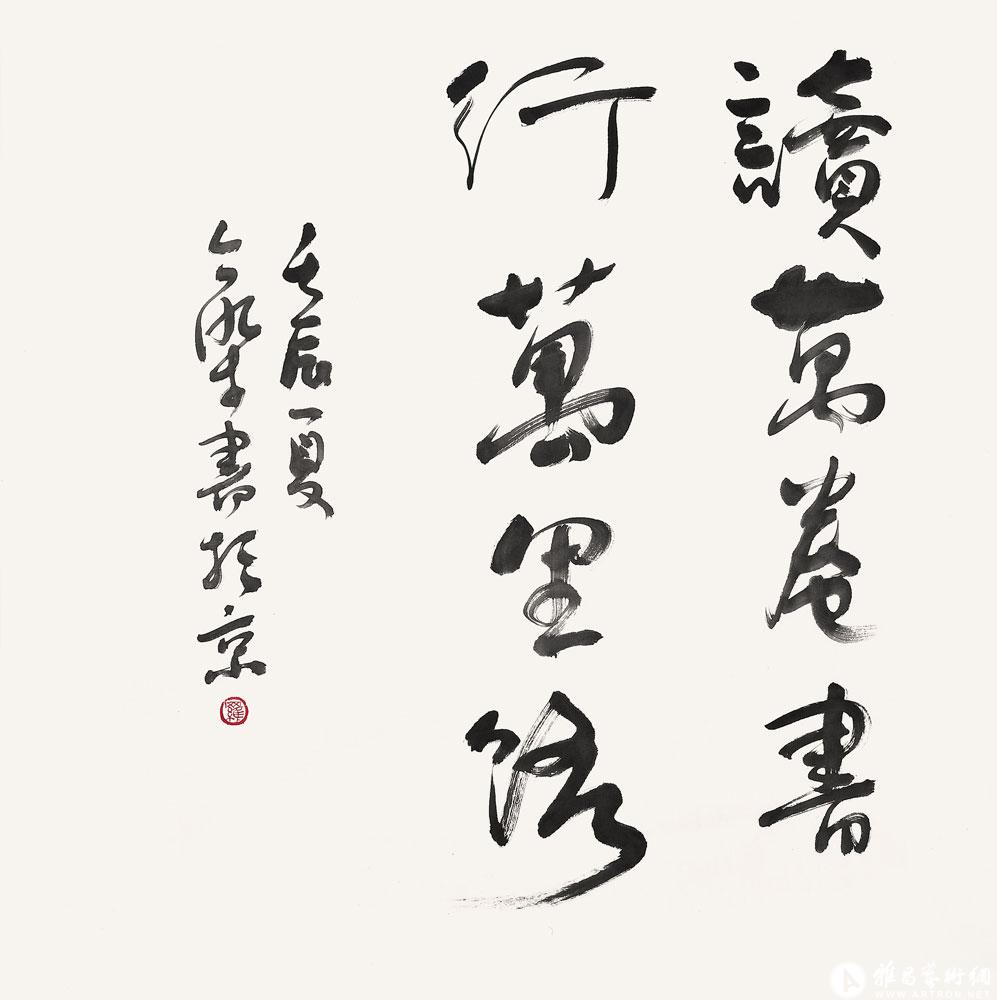 讀萬卷書
行萬里路
壬辰夏
書於京
雅昌藝術網
WWW.ARTRON.NET